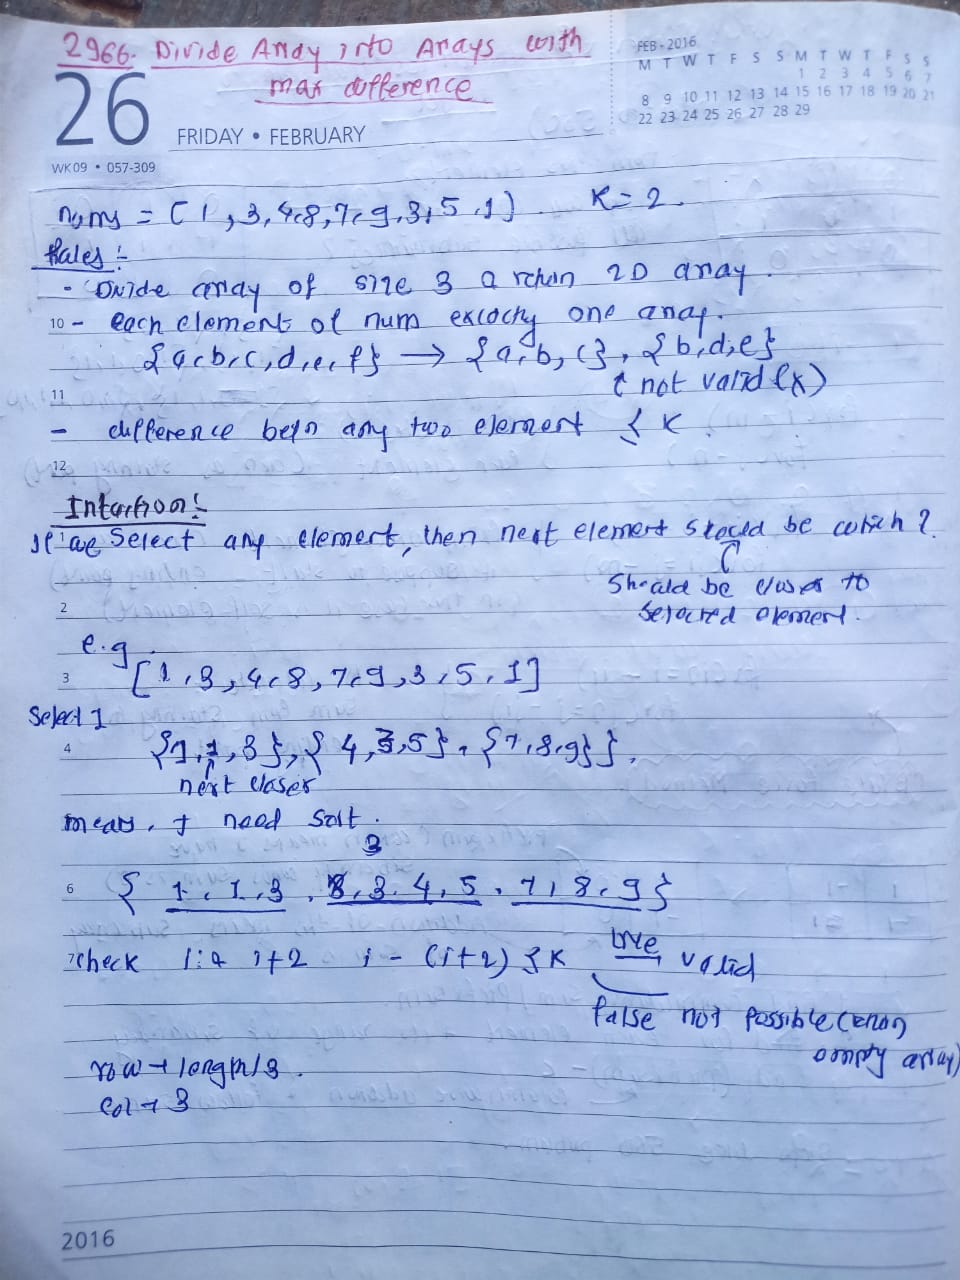 2966. Divide Array into Arays with
max difference
FEB - 2016
M T W T F S S M T W T F S S
1 2 3 4 5 6 7
8 9 10 11 12 13 14 15 16 17 18 19 20 21
22 23 24 25 26 27 28 29
26
FRIDAY • FEBRUARY
WK 09 • 057-309
nums = [1, 3, 4, 8, 7, 9, 3, 5, 1] K = 2.
Rules :-
- Divide array of size 3 & 2D array.
10 - each element of num one array.
{a, b, c, d, e, f} → {a, b, c}, {b, d, e}
not valid (x)
11
- difference betn any two element ≤ K.
12
Intuition :-
If we select any element, then next element should be which ?
Should be closer to
selected element.
2
e.g.
3 [1, 3, 4, 8, 7, 9, 3, 5, 1]
Select 1
4 {1, 1, 3}, {4, 3, 5}, {7, 8, 9}},
next closer
means, I need sort.
3
6 { 1, 1, 3, 3, 4, 5, 7, 8, 9}
7 check i & i+2 i - (i+2) ≤ K true valid
false not possible (
empty array)
row → length/3.
col → 3
2016